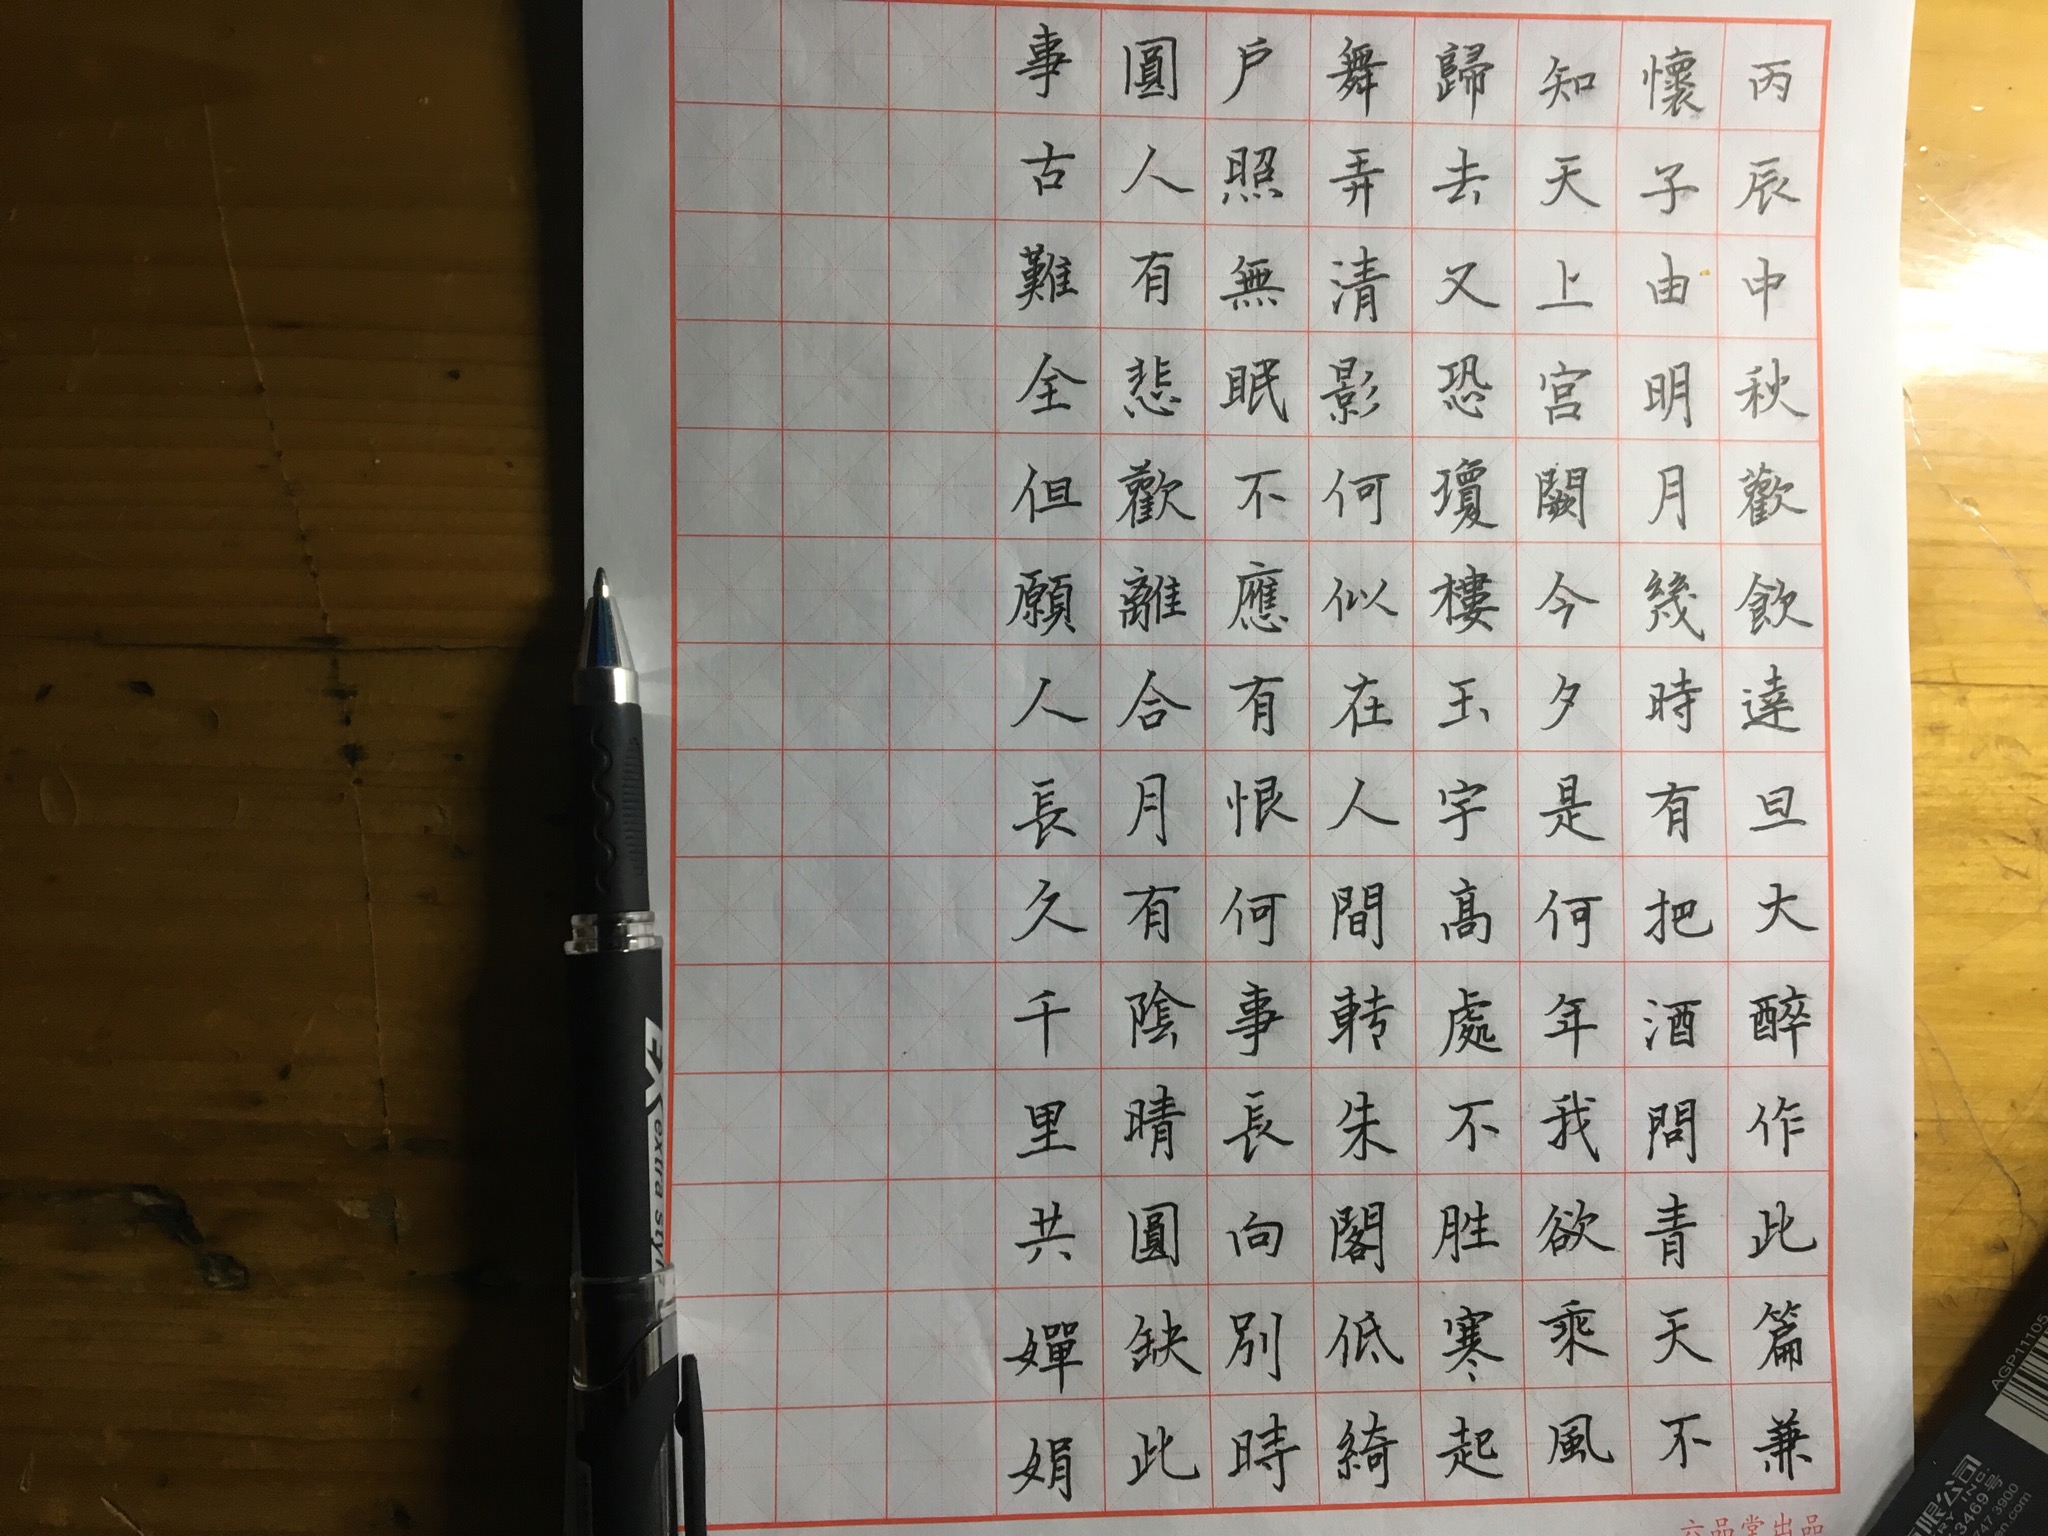 丙辰中秋歡飲達旦大醉作此篇兼
懷子由明月幾時有把酒問青天不
知天上宫闕今夕是何年我欲乘風
歸去又恐瓊樓玉宇高處不胜寒起
舞弄清影何似在人間轉朱閣低綺
户照無眠不應有恨何事長向别時
圓人有悲歡離合月有陰晴圓缺此
事古難全但願人長久千里共嬋娟
六品堂出品
extra style
AGP11105
限公司
3469号